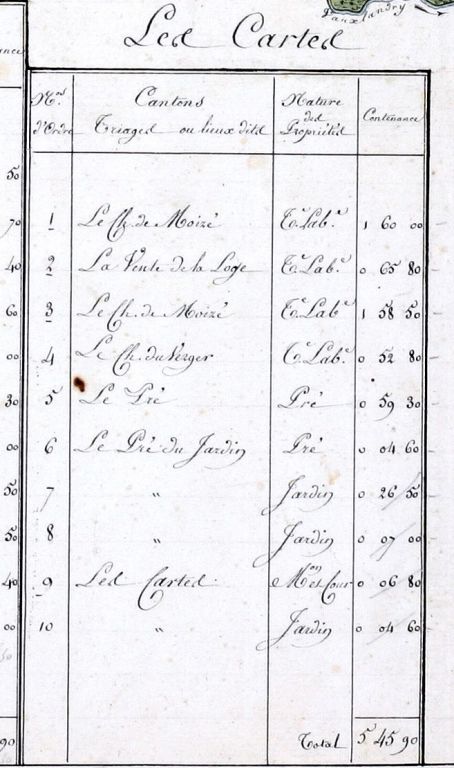 Vauxlandry
Les Cartes
Nos d'Ordre | Cantons Triages ou lieux dits | Nature des Propriétés | Contenance
1 Le Ch. de Moizé Te Labe 1 60 00
2 La Vente de la Loge Te Labe 0 65 80
3 Le Ch. de Moizé Te Labe 1 58 50
4 Le Ch. du Verger Te Labe 0 52 80
5 Le Pré Pré 0 59 30
6 Le Pré du Jardin Pré 0 04 60
7 " Jardin 0 26 50
8 " Jardin 0 07 00
9 Les Cartes. Mon et Cour 0 06 80
10 " Jardin 0 04 60
Total 5 45 90
50
70
40
60
00
30
00
50
50
40
00
90